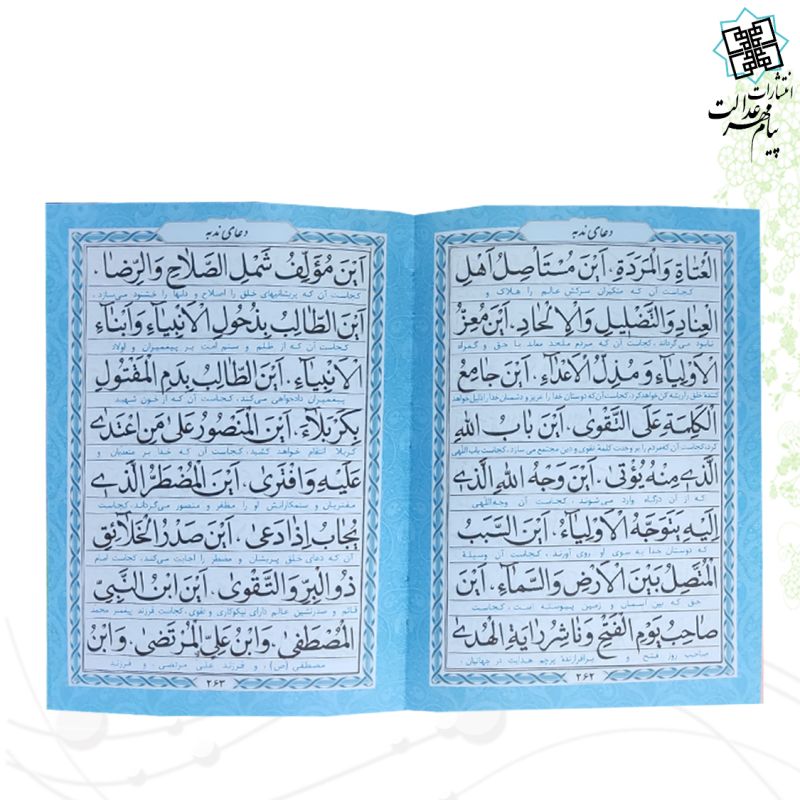 انتشارات
پیام مهر عدالت
دعای ندبه
الْعُتاةِ وَالْمَرَدَةِ، اَیْنَ مُسْتَاْصِلُ اَهْلِ
کجاست آن که متکبران سرکش عالم را هلاک و
الْعِنادِ وَالتَّضْلیلِ وَالْاِلْحادِ، اَیْنَ مُعِزُّ
نابود می‌گرداند، کجاست آن که مردم ملحد معاند با حق و گمراه
الْاَوْلِیاءِ وَ مُذِلُّ الْاَعْداءِ، اَیْنَ جامِعُ
کننده خلق را ریشه کن خواهد کرد، کجاست آن که دوستان خدا را عزیز و دشمنان خدا را ذلیل خواهد
الْکَلِمَةِ عَلَی التَّقْوی، اَیْنَ بابُ اللهِ
کرد، کجاست آن که مردم را بر وحدت کلمه تقوی و دین مجتمع می سازد، کجاست باب اللهی
الَّذی مِنْهُ یُؤْتی، اَیْنَ وَجْهُ اللهِ الَّذی
که از آن درگاه وارد می‌شوند، کجاست آن وجه‌اللهی
اِلَیْهِ یَتَوَجَّهُ الْاَوْلِیاءُ، اَیْنَ السَّبَبُ
که دوستان خدا به سوی او روی آورند، کجاست آن وسیله
الْمُتَّصِلُ بَیْنَ الْاَرْضِ وَالسَّماءِ، اَیْنَ
حق که بین آسمان و زمین پیوسته است، کجاست
صاحِبُ یَوْمِ الْفَتْحِ وَ ناشِرُ رایَةِ الْهُدی
صاحب روز فتح و برافرازنده پرچم هدایت در جهانیان،
۲۶۲
دعای ندبه
اَیْنَ مُؤَلِّفُ شَمْلِ الصَّلاحِ وَالرِّضا،
کجاست آن که پریشانیهای خلق را اصلاح و دلها را خشنود می‌سازد،
اَیْنَ الطّالِبُ بِذُحُولِ الْاَنْبِیاءِ وَ اَبْناءِ
کجاست آن که از ظلم و ستم امت بر پیغمبران و اولاد
الْاَنْبِیاءِ، اَیْنَ الطّالِبُ بِدَمِ الْمَقْتُولِ
پیغمبران دادخواهی می‌کند، کجاست آن که از خون شهید
بِکَرْبَلاءَ، اَیْنَ الْمَنْصُورُ عَلی مَنِ اعْتَدی
کربلا انتقام خواهد کشید، کجاست آن که خدا بر متعدیان و
عَلَیْهِ وَافْتَری، اَیْنَ الْمُضْطَرُّ الَّذی
مفتریان و ستمکارانش او را مظفر و منصور می‌گرداند، کجاست
یُجابُ اِذا دَعی، اَیْنَ صَدْرُ الْخَلائِقِ
آن که دعای خلق پریشان و مضطر را اجابت می‌کند، کجاست امام
ذُوالْبِرِّ وَالتَّقْوی، اَیْنَ ابْنُ النَّبِیِّ
قائم و صدرنشین عالم دارای نیکوکاری و تقوی، کجاست فرزند پیغمبر محمد
الْمُصْطَفی، وَابْنُ عَلِیٍّ الْمُرْتَضی، وَابْنُ
مصطفی (ص)، و فرزند علی مرتضی، و فرزند
۲۶۳